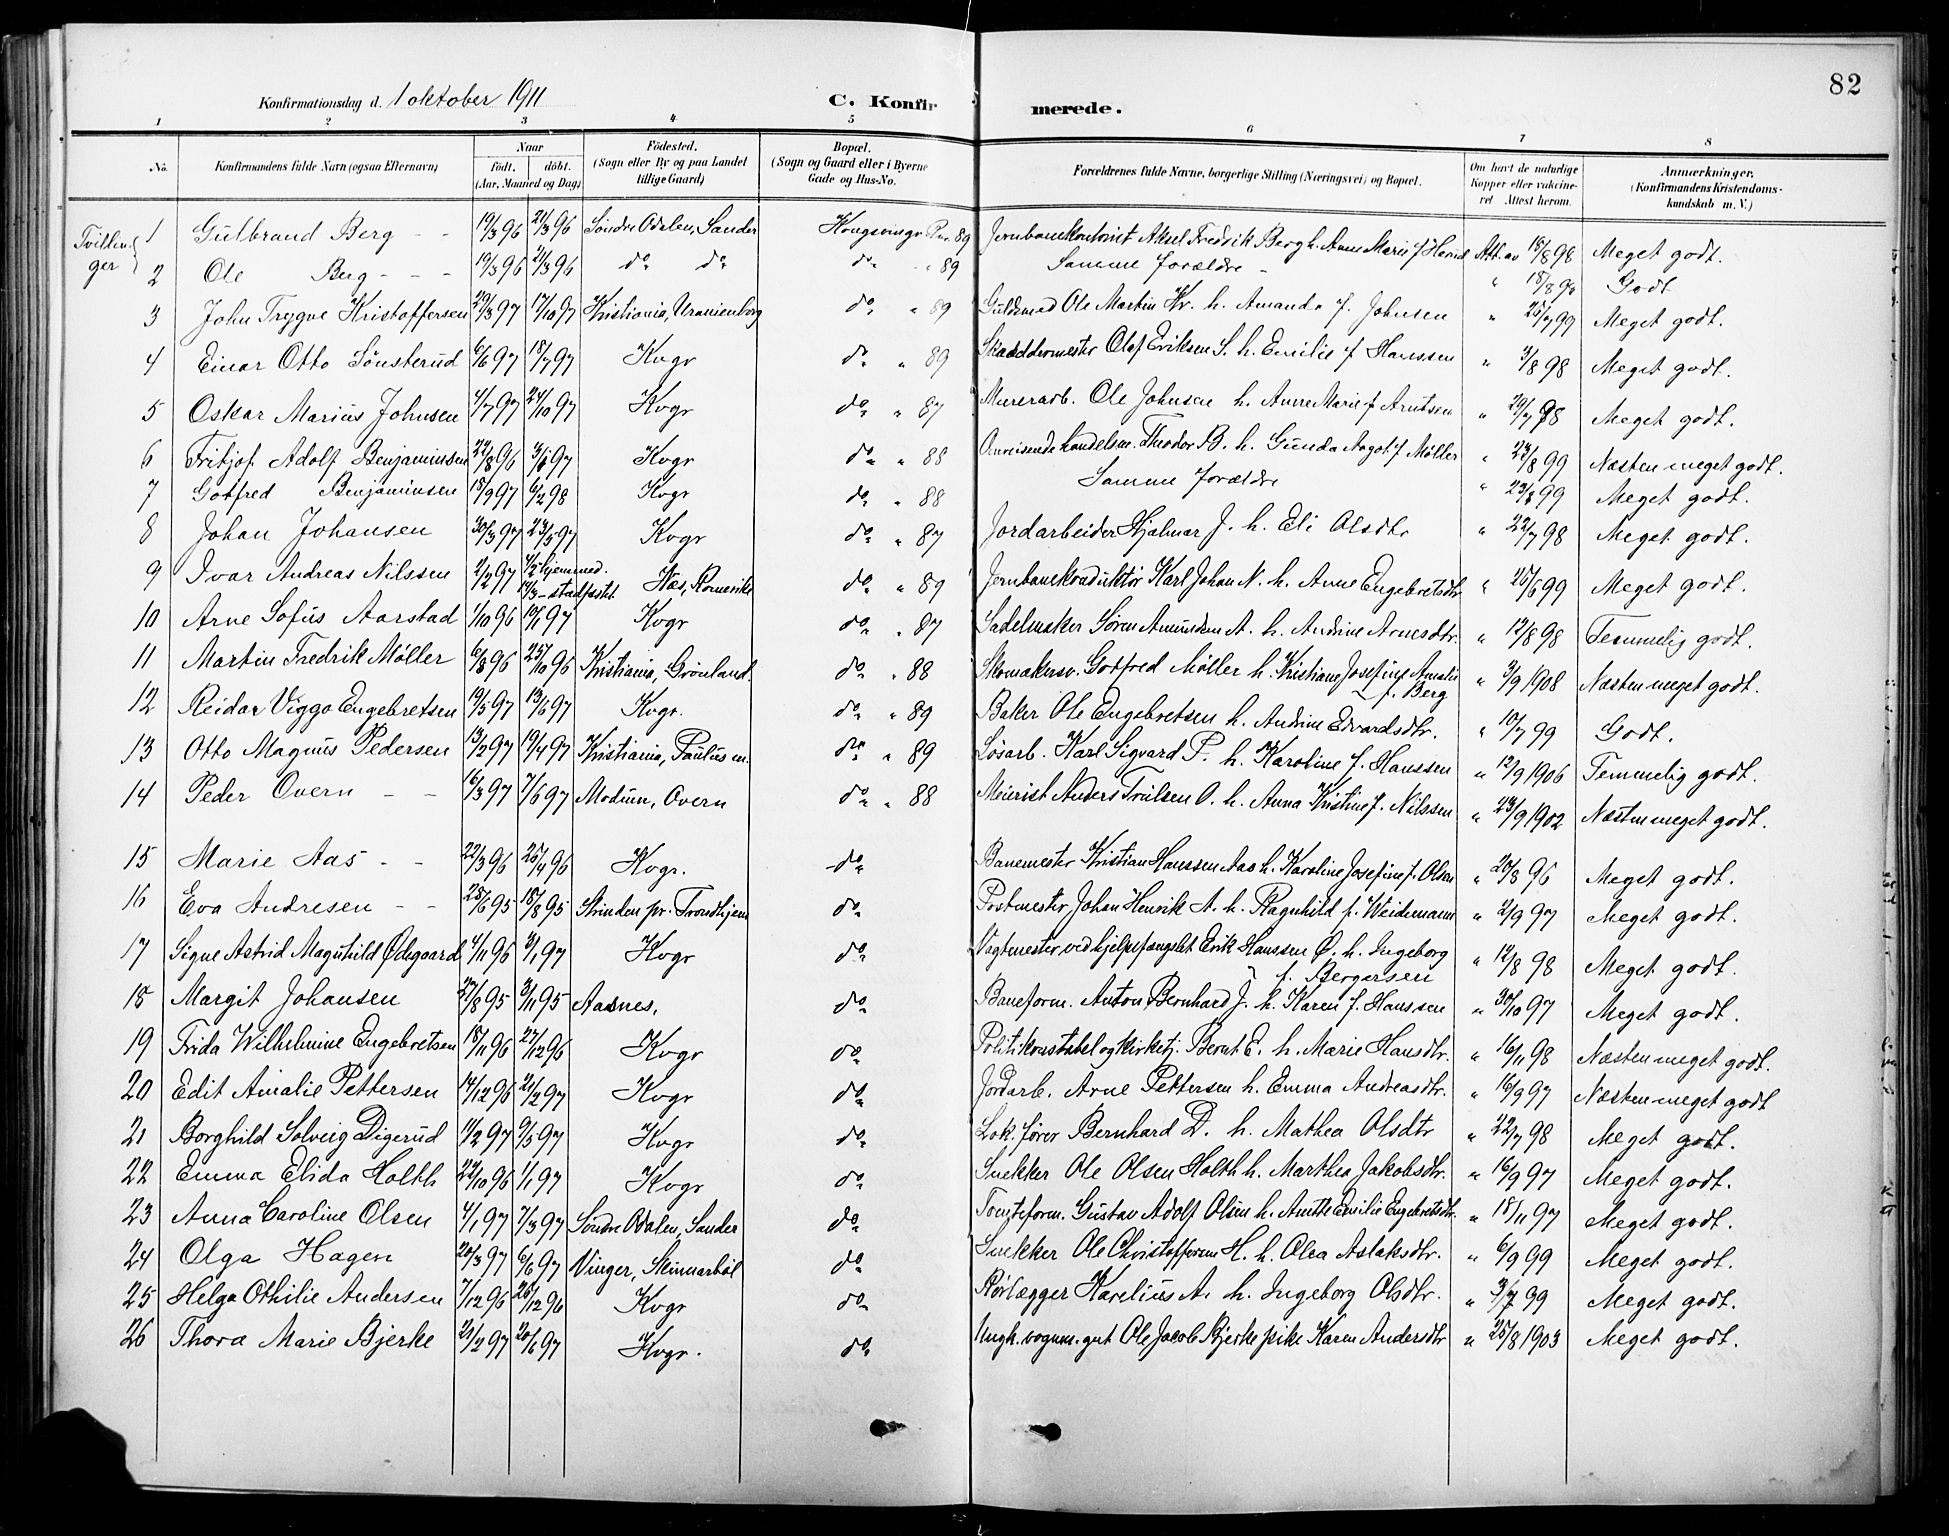 82
Konfirmationsdag d. 1 oktober 1911 C. Konfir merede.
1 2 3 4 5 6 7 8
No. Konfirmandens fulde Navn (ogsaa Efternavn) Naar födt. döbt. (Aar, Maaned og Dag) Födested. (Sogn eller By og paa Landet tillige Gaard) Bopæl. (Sogn og Gaard eller i Byerne Gade og Hus-No. Forældrenes fulde Navne, borgerlige Stilling (Næringsvei) og Bopæl. Om havt de naturlige Kopper eller vakcineret Attest herom. Anmærkninger. (Konfirmandens Kristendomskundskab m. V.)
Tvillinger
1 Gulbrand Berg - - 19/3 96 21/3 96 Søndre Odalen, Sander Kongsvinger 89 Jernbanekontorist Aksel Fredrik Berg h. Anne Marie f. Att. av 18/8 98 Meget godt.
2 Ole Berg - - - 19/3 96 21/3 96 do do do " 89 Samme forældre - " 18/8 98 Godt
3 John Trygve Kristoffersen 29/3 97 17/10 97 Kristiania, Uranienborg do " 89 Guldsmed Ole Martin Kr. h. Amanda f. Johnsen " 25/7 99 Meget godt.
4 Einar Otto Sønsterud 6/6 97 18/7 97 Kvgr do " 89 Skræddermester Olaf Eriksen S. h. Emilie f. Hanssen " 3/8 98 Meget godt.
5 Oskar Marius Johnsen 4/7 97 24/10 97 Kvgr do " 87 Murerarb. Ole Johnsen h. Anne Marie f. Arntsen " 29/7 98 Meget godt.
6 Fritjof Adolf Benjaminssen 22/8 96 3/6 97 Kvgr do " 88 Omreisende handelsm. Theodor B. h. Gunda Aagot f. Møller " 23/8 99 Næsten meget godt.
7 Gotfred Benjaminsen 18/9 97 6/2 98 Kvgr do " 88 Samme forældre " 23/8 99 Meget godt.
8 Johan Johansen 30/3 97 23/5 97 Kvgr do " 87 Jordarbeider Hjalmar J. h. Eli Olsdtr " 22/7 98 Meget godt.
9 Ivar Andreas Nilssen 2/2 97 4/2 hjemmed. 14/3 - stadfæstet Næs, Romerike do " 89 Jernbanekonduktør Karl Johan N. h. Anne Engebretsdtr " 25/6 99 Meget godt.
10 Arne Sofus Aarstad 1/10 96 10/1 97 Kvgr do " 87 Sadelmaker Søren Amundsen A. h. Andrine Arnesdtr. " 12/8 98 Temmelig godt.
11 Martin Fredrik Møller 6/8 96 25/10 96 Kristiania, Grønland. do " 88 Skomakersv. Gotfred Møller h. Kristiane Josefine Amalie f. Berg " 3/9 1908 Næsten meget godt.
12 Reidar Viggo Engebretsen 19/5 97 13/6 97 Kvgr. do " 89 Baker Ole Engebretsen h. Andrine Edvardsdtr. " 10/7 99 Godt.
13 Otto Magnus Pedersen 13/2 97 19/4 97 Kristiania, Paulus m. do " 89 Løsarb. Karl Sigvard P. h. Karoline f. Hanssen " 12/9 1906 Temmelig godt.
14 Peder Overn - - 16/3 97 7/6 97 Modum, Overn do " 88 Meierist Anders Trulsen O. h. Anna Kristine f. Nilssen " 23/9 1902 Næsten meget godt.
15 Marie Aas - - 22/3 96 26/4 96 Kvgr. do Banemester Kristian Hanssen Aas h. Karoline Josefine f. Olsen " 20/8 96 Meget godt.
16 Eva Andresen - - 25/6 95 18/8 95 Strinden pr. Trondhjem do Postmester Johan Henrik A. h. Ragnhild f. Weidemann " 2/9 97 Meget godt.
17 Signe Astrid Magnhild Ødegaard 4/11 96 3/1 97 Kvgr do Vagtmester ved hjelpefængslet Erik Hanssen Ø. h. Ingeborg f. Bergersen " 12/8 98 Meget godt.
18 Margit Johansen 27/8 95 3/11 95 Aasnes, do Baneform. Anton Bernhard J. h. Karen f. Hanssen " 30/10 97 Meget godt.
19 Frida Wilhelmine Engebretsen 18/11 96 27/12 96 Kvgr do Politikonstabel og kirketj. Bernt E. h. Marie Hansdtr. " 16/11 98 Næsten meget godt.
20 Edit Amalie Pettersen 14/12 96 21/2 97 Kvgr do Jordarb. Arne Pettersen h. Emma Andreasdtr. " 16/9 97 Næsten meget godt
21 Borghild Solveig Digerud 11/2 97 9/5 97 Kvgr do Lok. fører Bernhard D. h. Mathea Olsdtr " 22/7 98 Meget godt.
22 Emma Elida Holth 22/10 96 1/1 97 Kvgr do Snekker Ole Olsen Holth h. Marthea Jakobsdtr. " 16/9 97 Meget godt.
23 Anna Caroline Olsen 4/1 97 7/3 97 Søndre Odalen, Sander do Tomteform. Gustav Adolf Olsen h. Anette Emilie Engebretsdtr. " 18/11 97 Meget godt.
24 Olga Hagen 20/3 97 6/6 97 Vinger, Skinnarbøl do Snekker Ole Christoffersen H. h. Olea Aslaksdtr. " 6/9 99 Meget godt.
25 Helga Othilie Andersen 7/12 96 26/12 96 Kvgr do Rørlægger Karelius A. h. Ingeborg Olsdtr. " 3/7 99 Meget godt.
26 Thora Marie Bjerke 21/2 97 20/6 97 Kvgr. do Ungk. vognm. gut Ole Jacob Bjerke pike Karen Andersdtr " 25/8 1903 Meget godt.